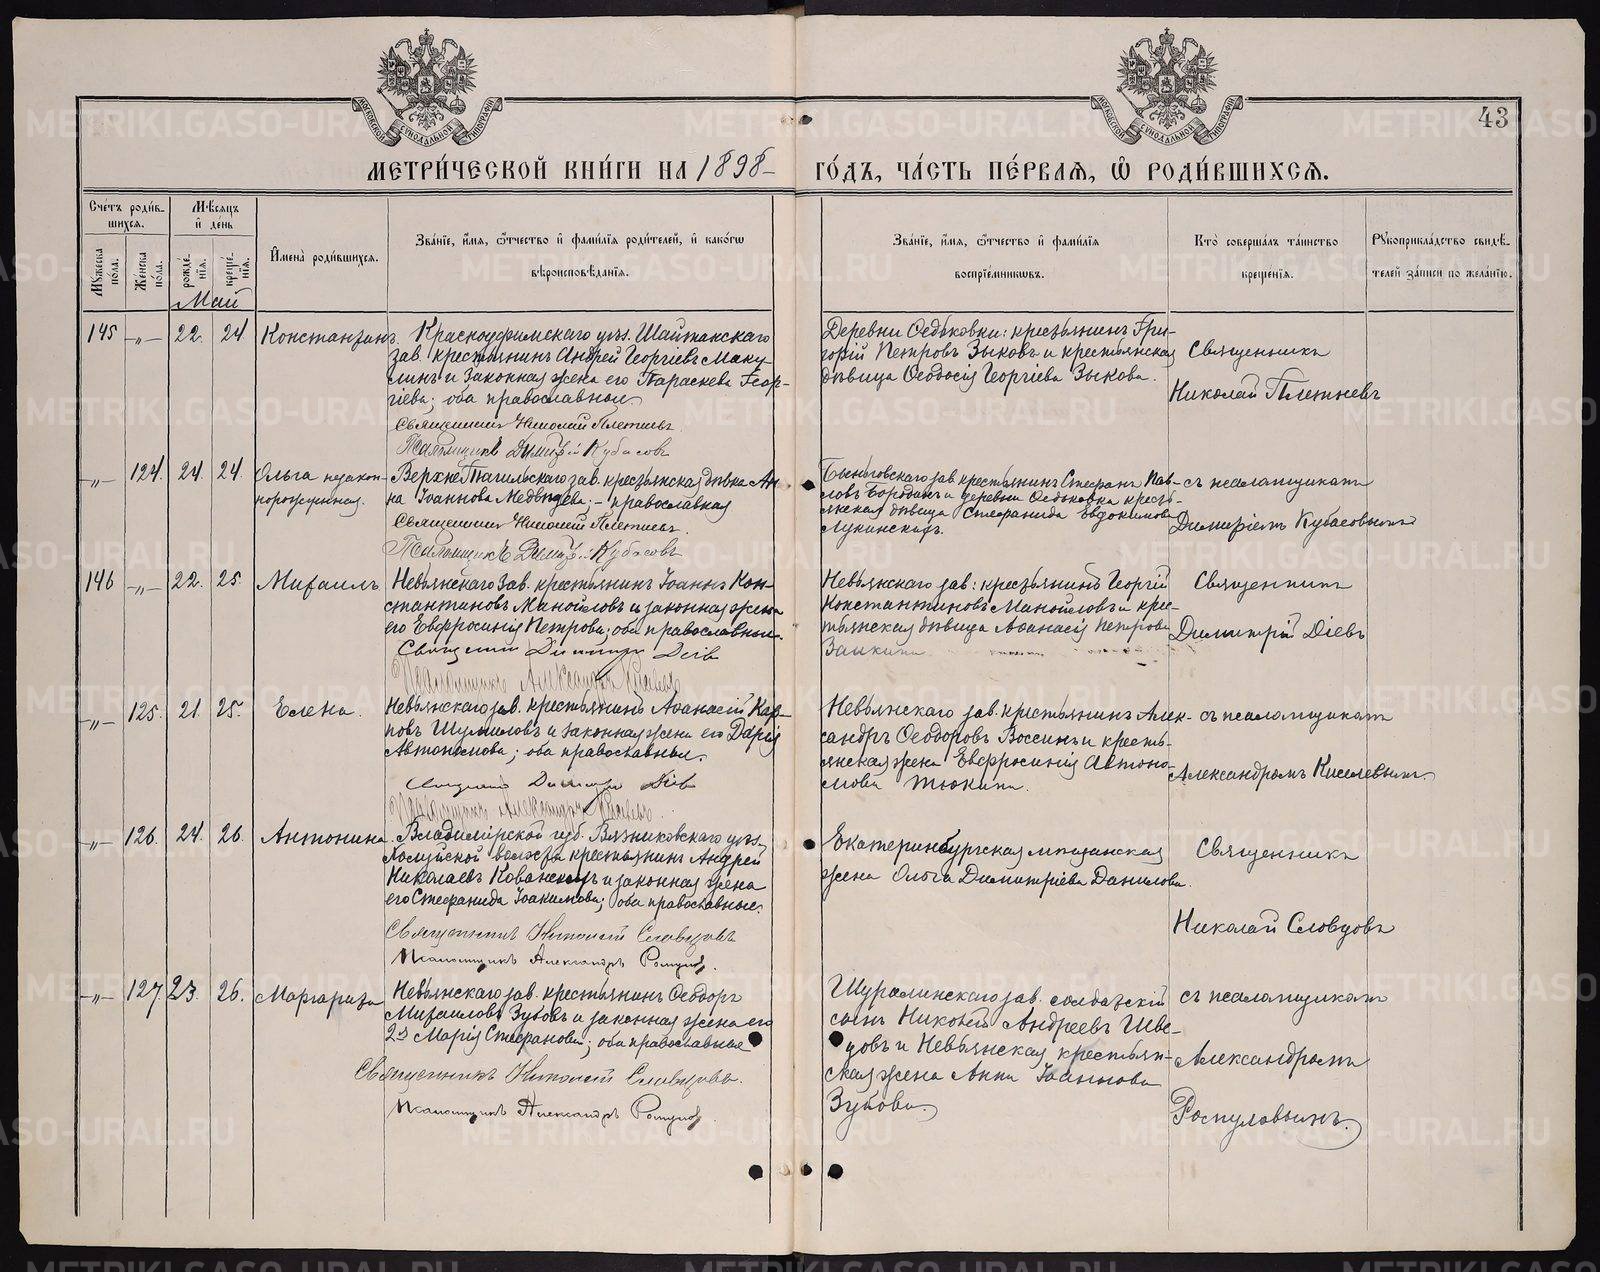 МОСКОВСКОЙ СѴНОДАЛЬНОЙ ТИПОГРАФІИ
МОСКОВСКОЙ СѴНОДАЛЬНОЙ ТИПОГРАФІИ
43
МЕТРИ́ЧЕСКОЙ КНИ́ГИ НА 1898 ГО́ДЪ, ЧА́СТЬ ПЕ́РВАѦ, Ѽ РОДИ́ВШИХСѦ.
Сче́тъ роди́в-
шихсѧ.
Мꙋжеска по́ла.
Же́нска по́ла.
Мѣ́сѧцъ
и҆ де́нь
рожде́-
нїѧ.
креще́-
нїѧ.
И҆мена̀ роди́вшихсѧ.
Зва́нїе, и҆́мѧ, ѻ҆́тчество и҆ фами́лїѧ роди́телей, и҆ како́гѡ
вѣроисповѣ́данїѧ.
Зва́нїе, и҆́мѧ, ѻ҆́тчество и҆ фами́лїѧ
воспрїе́мникѡвъ.
Кто̀ соверша́лъ та́инство
креще́нїѧ.
Рꙋкоприкла́дство свидѣ́-
телей за́писи по жела́нїю.
Май
145 -„- 22. 24 Константинъ
Красноуфимскаго уѣз. Шайтанскаго
зав. крестьянинъ Андрей Георгіевъ Маку-
шинъ и законная жена его Параскева Геор-
гіева; оба православные.
Священникъ Николай Плетневъ.
Псаломщикъ Димитрій Кубасовъ
Деревни Ѳедьковки: крестьянинъ Гри-
горій Петровъ Зыковъ и крестьянская
дѣвица Ѳеодосія Георгіева Зыкова.
Священникъ
Николай Плетневъ
-„- 124. 24. 24. Ольга незакон-
норожденная.
Верхне Тагильскаго зав. крестьянская дѣвка Ан-
на Іоаннова Медвѣдева; - православная
Священникъ Николай Плетневъ.
Псаломщикъ Димитрій Кубасовъ
Быньговскаго зав. крестьянинъ Стефанъ Пав-
ловъ и деревни Ѳедьковки кресть-
янская дѣвица Стефанида Евдокимова
съ псаломщикомъ
Димитріемъ Кубасовымъ
146 -„- 22. 25. Михаилъ
Невьянскаго зав. крестьянинъ Іоаннъ Кон-
стантиновъ Манойловъ и законная жена
его Евфросинія Петрова; оба православные.
Священникъ Димитрій Діевъ
Псаломщикъ Александръ Киселевъ
Невьянскаго зав: крестьянинъ Георгій
Константиновъ Манойловъ и крес-
тьянская дѣвица Аѳанасія Петрова
Заикина
Священникъ
Димитрій Діевъ
-„- 125. 21. 25. Елена.
Невьянскаго зав. крестьянинъ Аѳанасій Кар-
повъ Шумиловъ и законная жена его Дарія
Автономова; оба православные.
Священникъ Димитрій Діевъ
Псаломщикъ Александръ Киселевъ.
Невьянскаго зав. крестьянинъ Алек-
сандръ Ѳеодоровъ и кресть-
янская жена Евфросинія Автоно-
мова Тюкина.
съ псаломщикомъ
Александромъ Киселевымъ.
-„- 126. 24. 26. Антонина.
Владимірской губ. Вязниковскаго уѣз.
волости крестьянинъ Андрей
Николаевъ и законная жена
его Стефанида Іоакимова; оба православные.
Священникъ Николай Словцовъ
Псаломщикъ Александръ
Екатеринбургская мѣщанская
жена Ольга Димитріева Данилова.
Священникъ
Николай Словцовъ
-„- 127. 23. 26. Маргарита
Невьянскаго зав. крестьянинъ Ѳеодоръ
Михаиловъ Зубовъ и законная жена его
Марія Стефанова; оба православные
Священникъ Николай Словцовъ.
Псаломщикъ Александръ
Шуралинскаго зав. солдатскій
сынъ Андреевъ Шве-
цовъ и Невьянская крестьян-
ская жена Анна Іоаннова
Зубова.
съ псаломщикомъ
Александромъ
METRIKI.GASO-URAL.RU